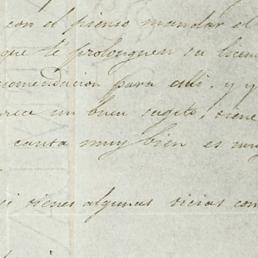 con el pienso mandar el
que le prolonguen su licen
comendacion para alli, y y
rece un buen sugeto, viene
canta muy bien es muy
si vienes algunas vicias con